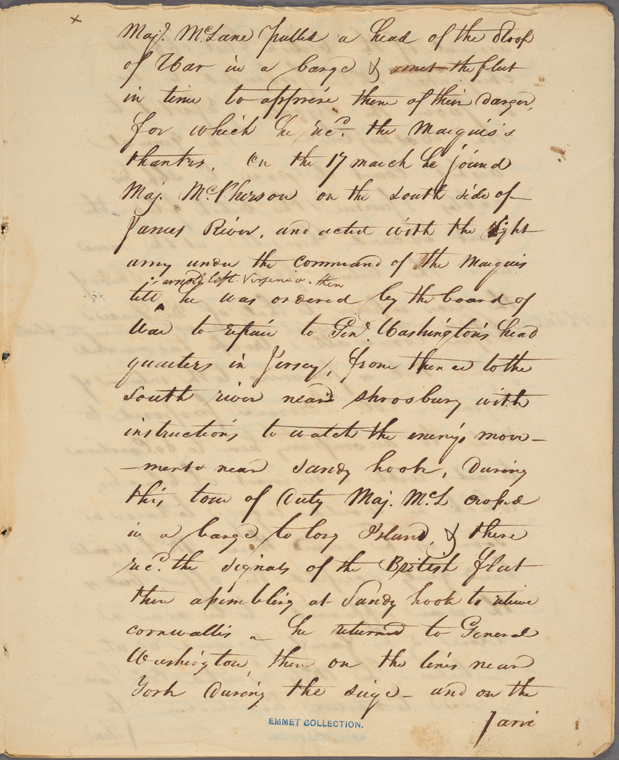 x
Majr. McLane pulled a head of the Sloop
of War in a barge & met the fleet
in time to apprise them of their danger,
for which he recd. the Marquis's
thanks. On the 17 march he joind
Maj. McPherson on the south side of
James River, and acted with the light
army under the command of the Marquis
Arnold left Virginia. then
till he was ordered by the board of
War to repair to Genl. Washington's head
quarters in Jersey, from thence to the
South river near Shrosbury with
instructions to watch the enemy's move-
-ments near Sandy hook, During
this tour of Duty Maj. McL crossed
in a barge to long Island, & there
recd. the signals of the British fleet
then assembling at Sandy hook to relieve
cornwallis - he returned to General
Washington then on the lines near
York During the siege - and on the
Jarvi
EMMET COLLECTION.